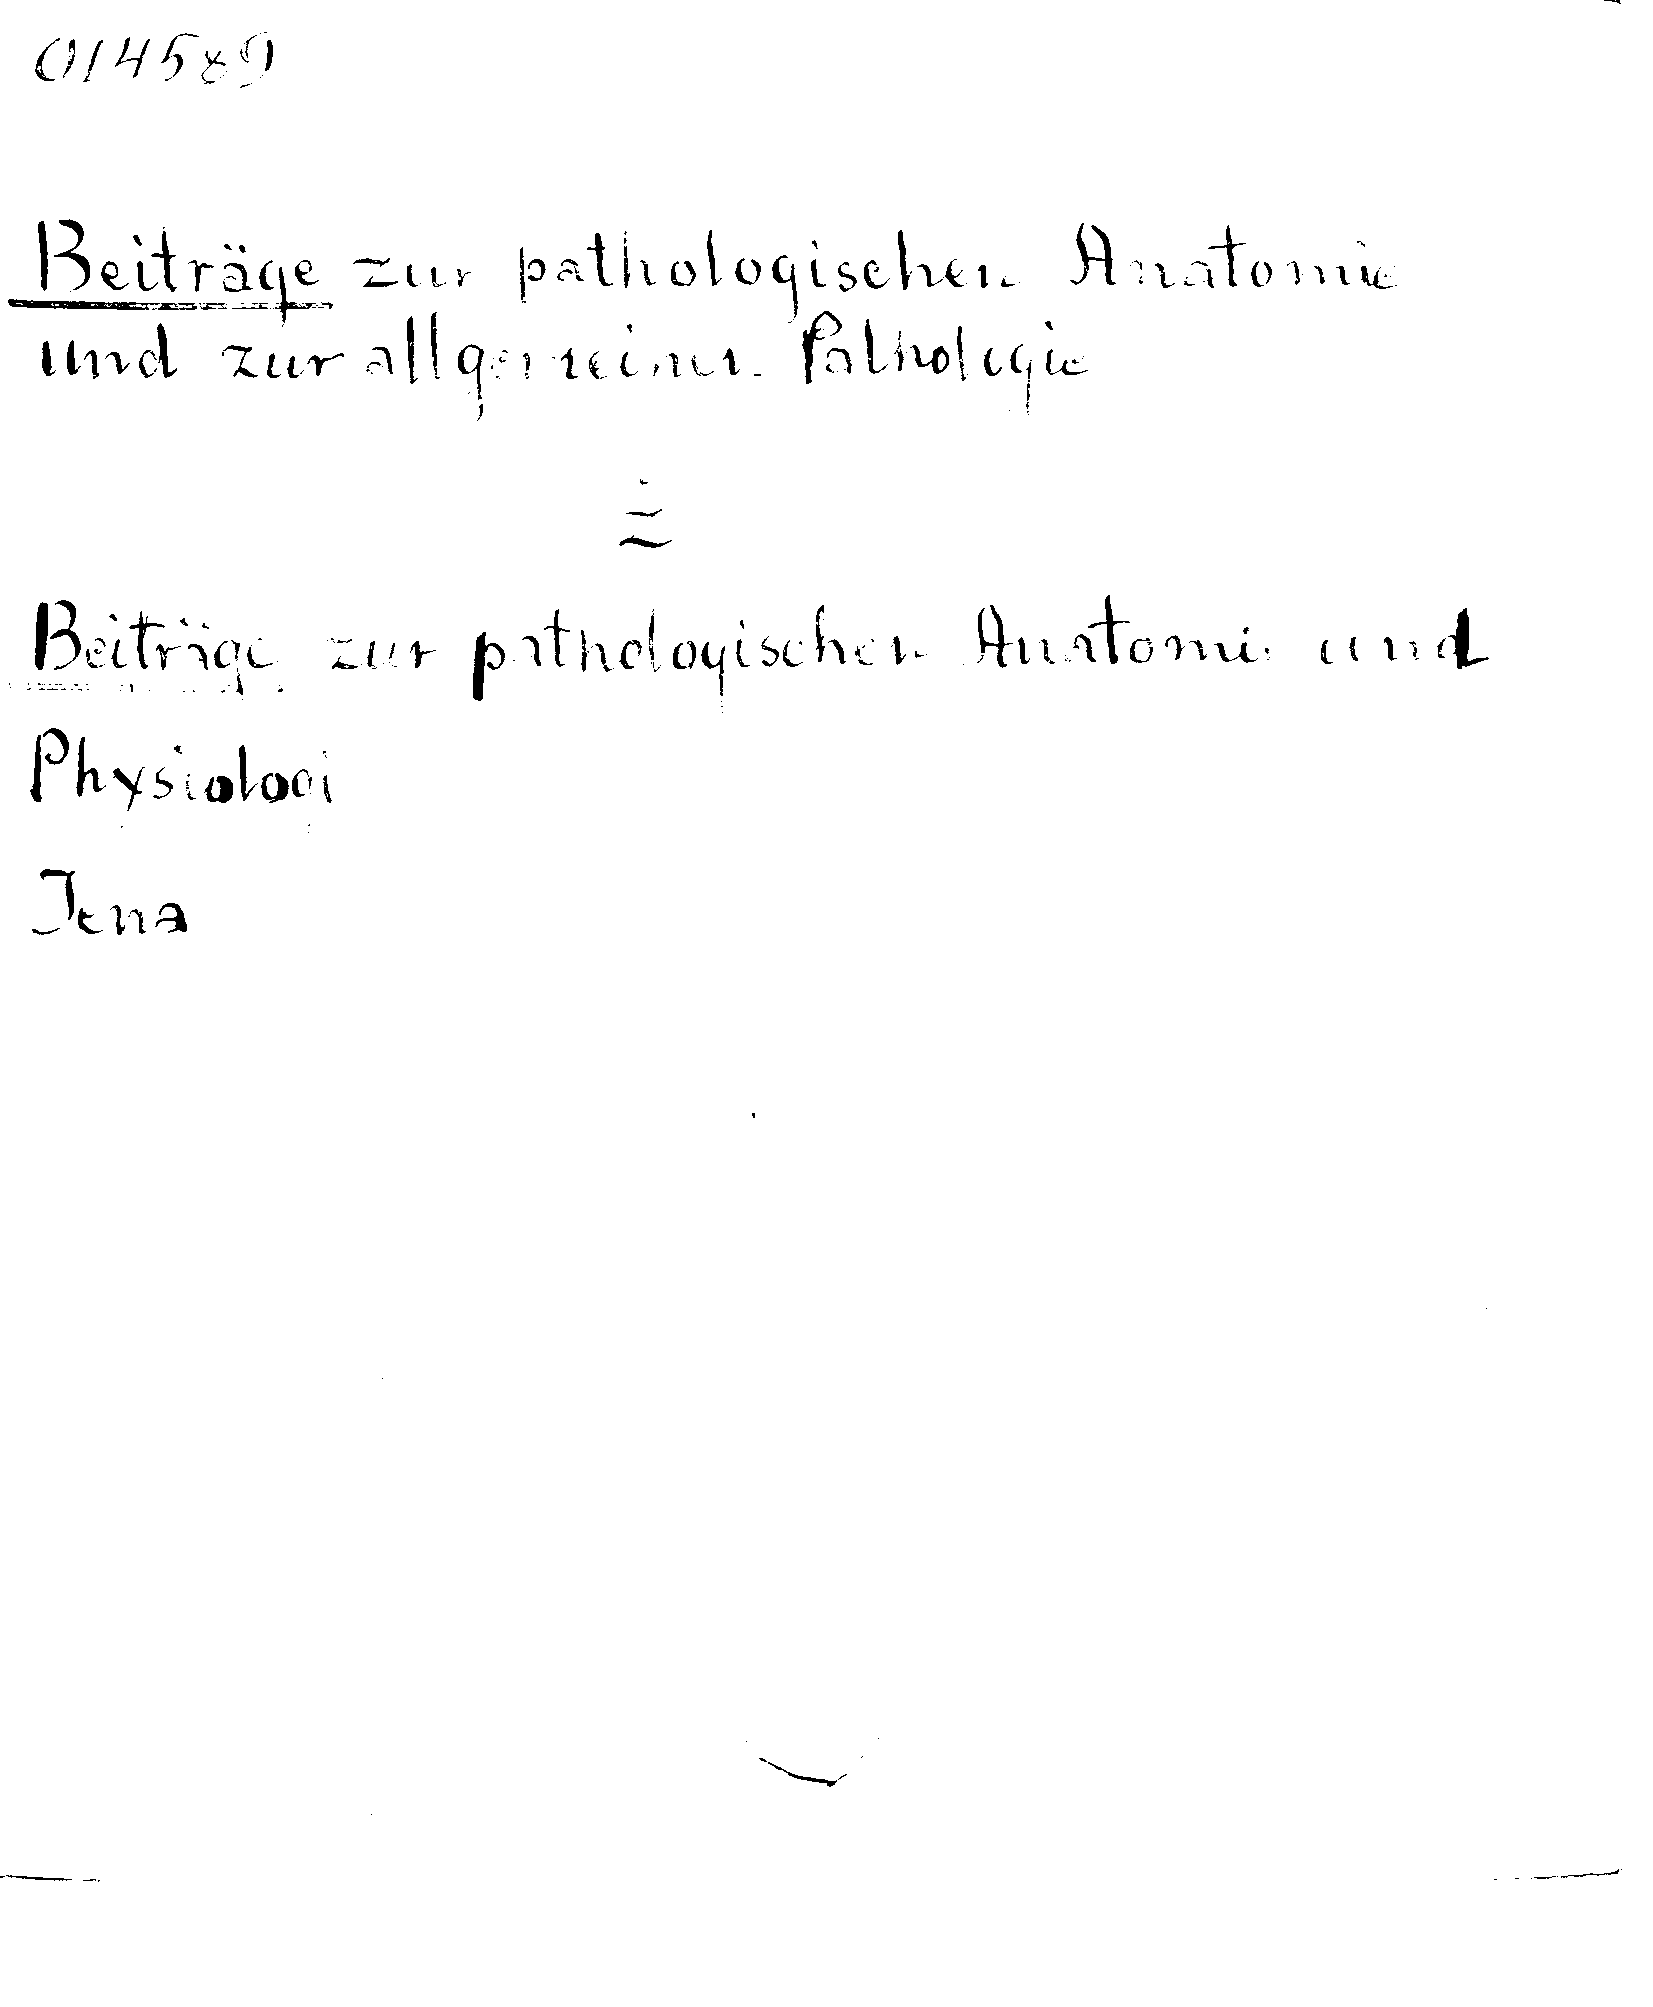 014589
Beiträge zur pathologischen Anatomie
und zur allgemeinen Pathologie
=
Beiträge zur pathologischen Anatomie und
Physiologi
Jena